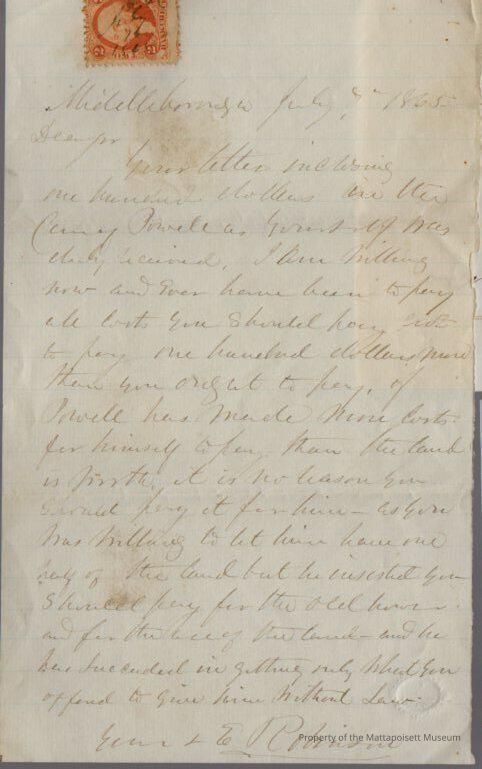 Middleborough July 7th 1865
Dear Sir
Your letter inclosing
one hundred dollars in the
Powell as yourself was
duly received. I am willing
now and Ever have been to pay
all Costs you Should pay
to pay one hundred dollars more
than you ought to pay, if
Powell has Made More Costs
for himself to pay than the land
is worth it is no reason you
Should pay it for him - as you
was willing to let him have one
half of the land but he insisted you
Should pay for the old house
and for the use of the land - and he
has Succeeded in getting only what you
offered to give him without Law
Yours & E Robinson
Property of the Mattapoisett Museum